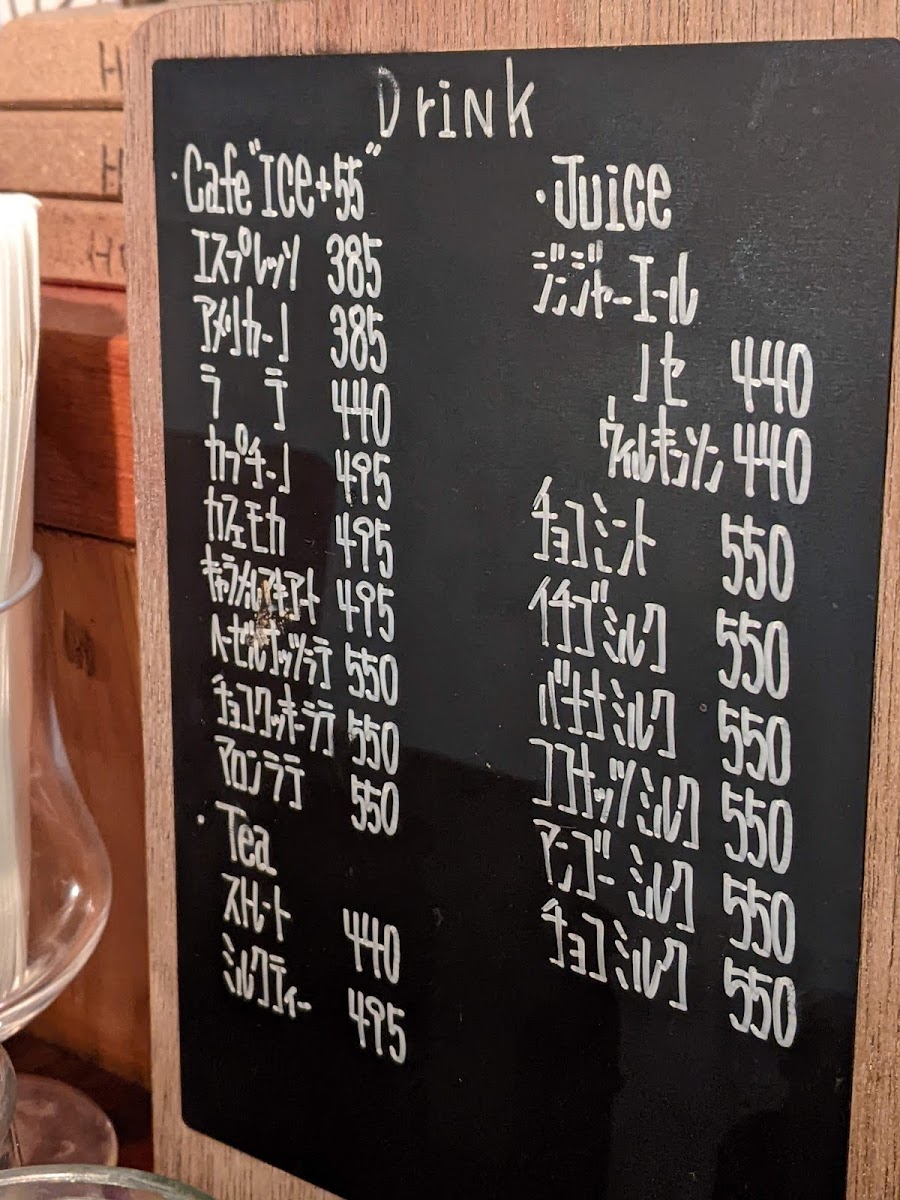 Drink
・Cafe "ICE+55"
エスプレッソ 385
アメリカーノ 385
ラテ 440
カプチーノ 495
カフェモカ 495
キャラメルマキアート 495
ヘーゼルナッツラテ 550
チョコクッキーラテ 550
マロンラテ 550
・Tea
ストレート 440
ミルクティー 495
・Juice
ジンジャーエール
ノセ 440
ウィルキンソン 440
チョコミント 550
イチゴミルク 550
バナナミルク 550
ココナッツミルク 550
マンゴーミルク 550
チョコミルク 550